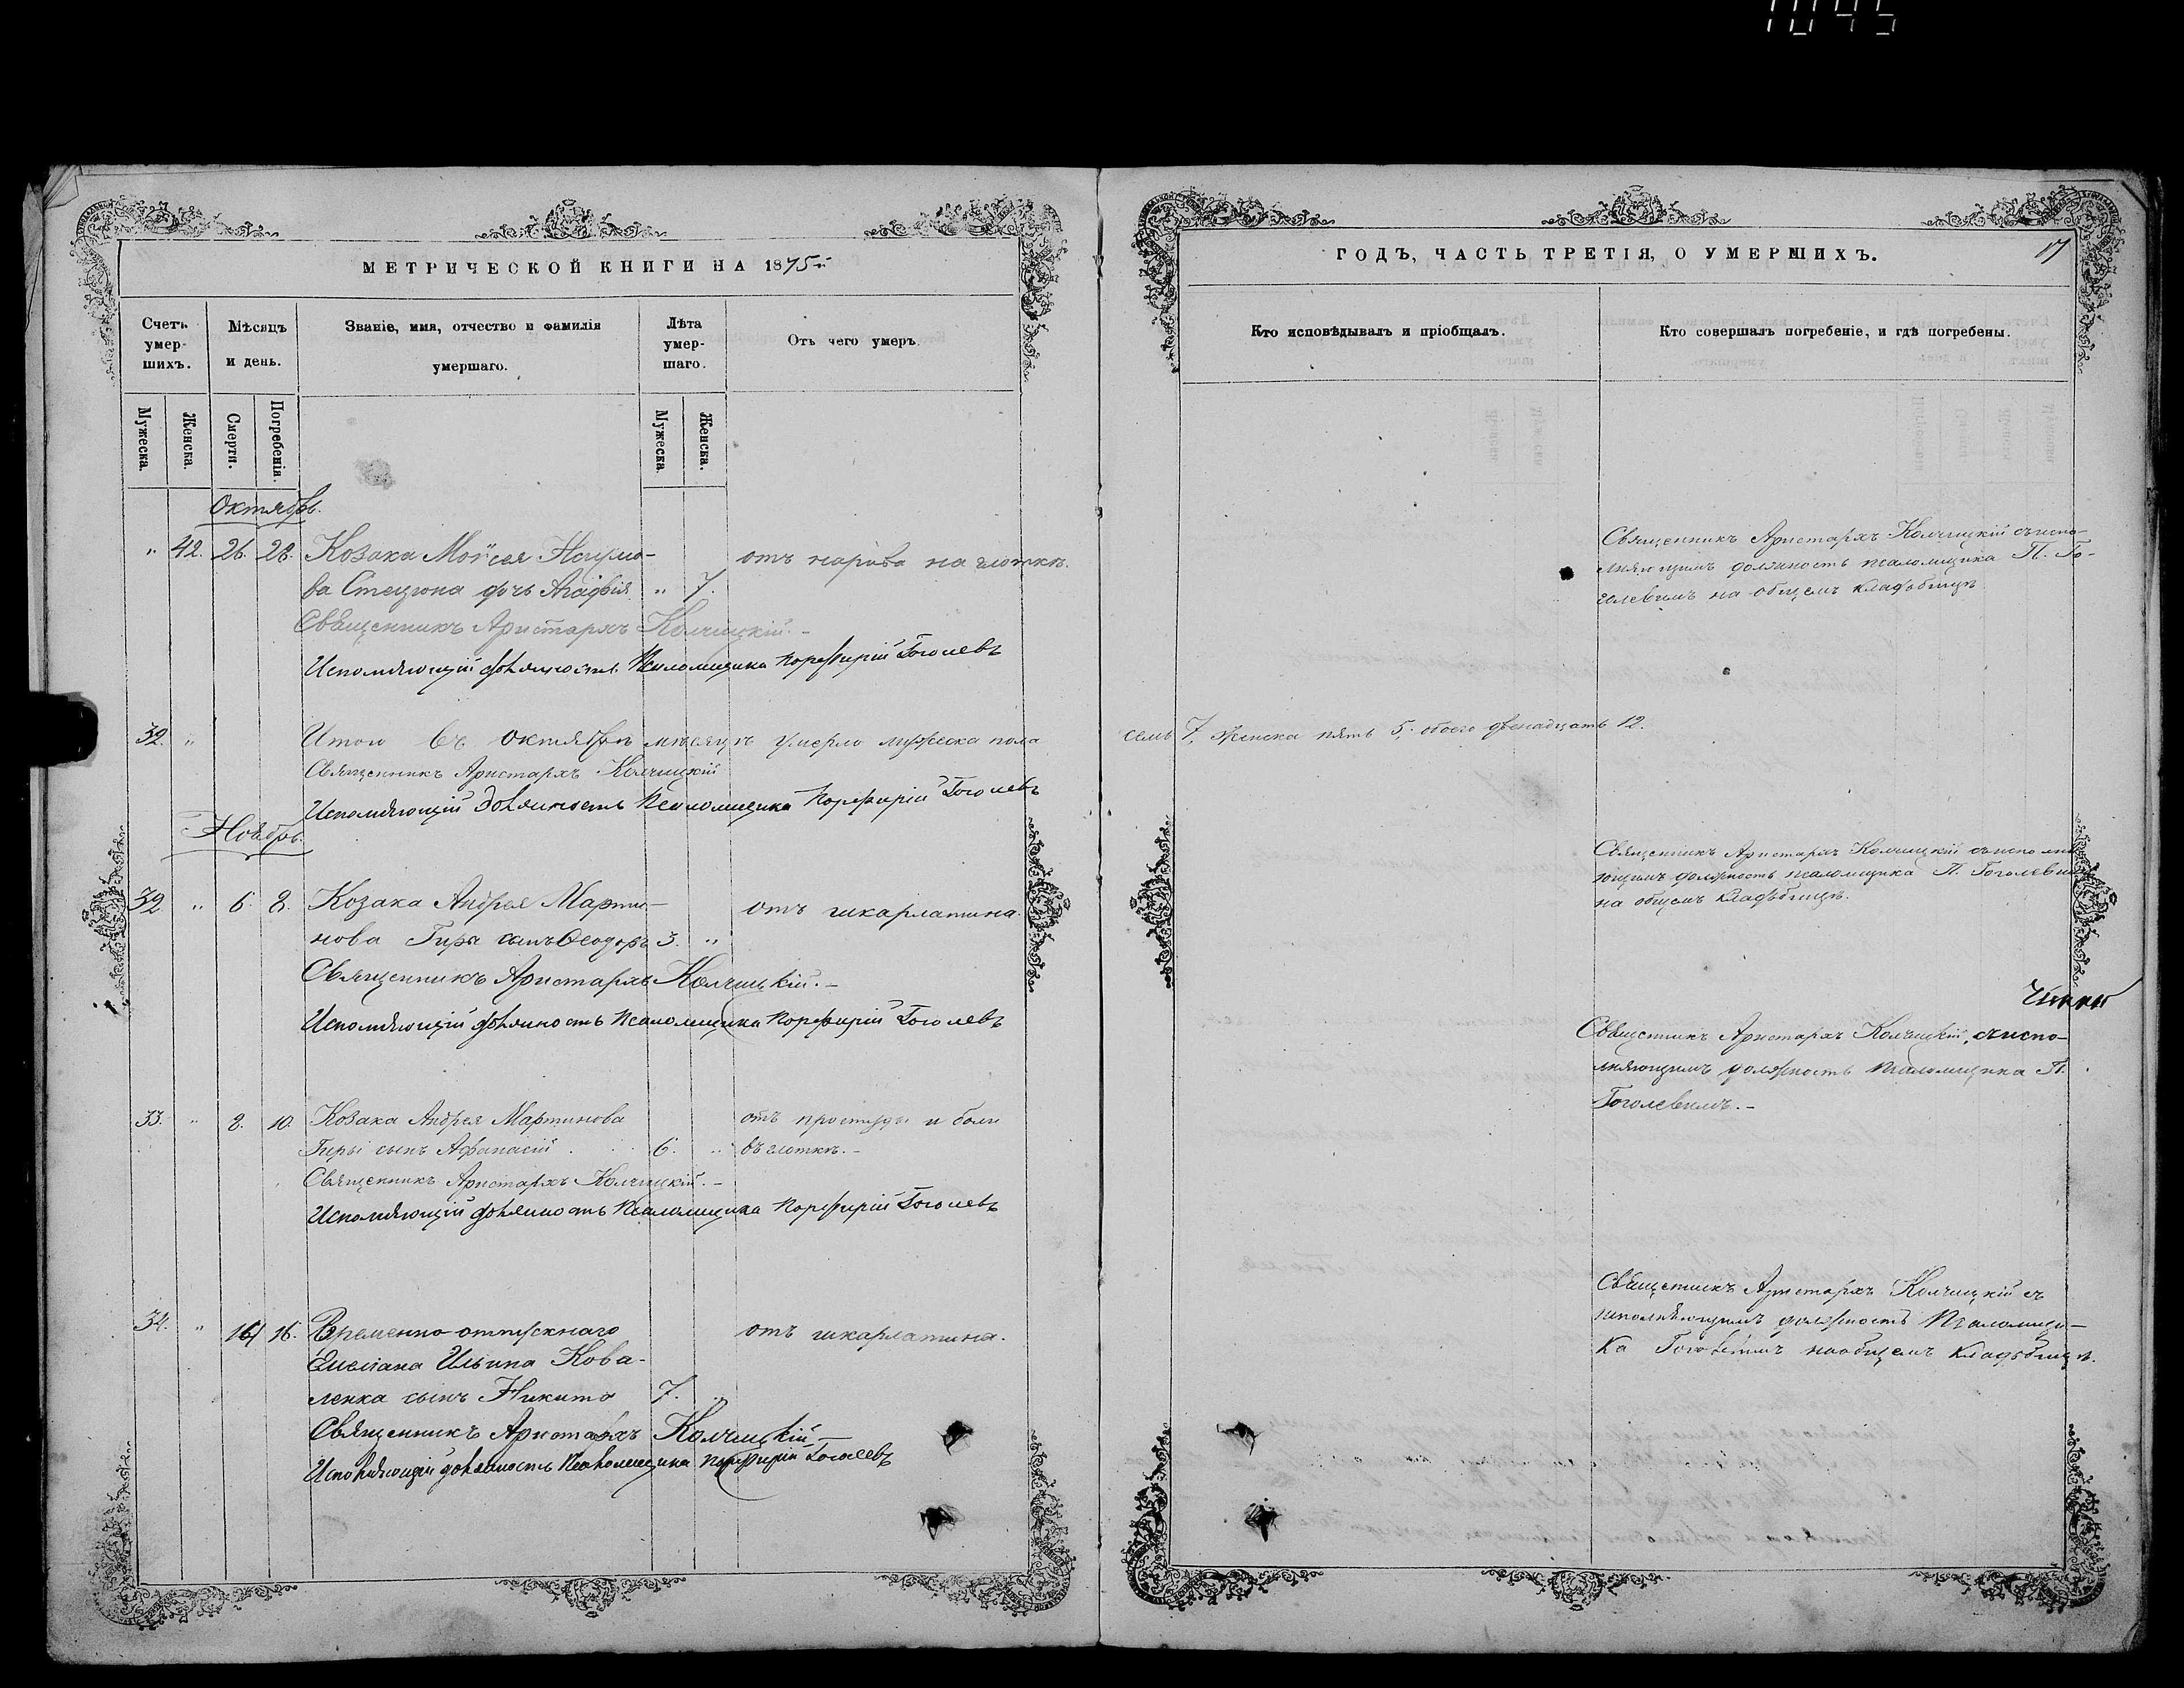 1045
МЕТРИЧЕСКОЙ КНИГИ НА 1875
Счетъ умер-шихъ.
Мѣсяцъ и день.
Званіе, имя, отчество и фамилія умершаго.
Лѣта умер-шаго.
Отъ чего умеръ.
Мужеска.
Женска.
Смерти.
Погребенія.
Мужеска.
Женска.
Октябрь.
" 42. 26. 28. Козака Мойсея Наумо- отъ нарива на глоткѣ.
ва Стецюна дочь Агафія " 7.
Священникъ Аристархъ Колчицкій.-
Исполняющій должность Псаломщика Порфирій Гоголевъ
32. " Итого въ октябрѣ мѣсяцѣ умерло мужеска пола
Священникъ Аристархъ Колчицкій
Исполняющій должность Псаломщика Порфирій Гоголевъ
Ноябрь.
32 " 6. 8. Козака Андрея Марти- отъ шкарлатина.
нова Гиры сынъ Ѳеодоръ 3. "
Священникъ Аристархъ Колчицкій.-
Исполняющій должность Псаломщика Порфирій Гоголевъ
33. " 8. 10. Козака Андрея Мартинова отъ простуды и боли
Гиры сынъ Афанасій 6. " въ глоткѣ.-
Священникъ Аристархъ Колчицкій.-
Исполняющій должность Псаломщика Порфирій Гоголевъ
34. " 16. Временно-отпускнаго отъ шкарлатина.
Емеліана Ильина Кова-
ленка сынъ Никита 7. "
Священникъ Аристархъ Колчицкій
Исполняющій должность Псаломщика Порфирій Гоголевъ
ГОДЪ, ЧАСТЬ ТРЕТІЯ, О УМЕРШИХЪ.
17
Кто исповѣдывалъ и пріобщалъ.
Кто совершалъ погребеніе, и гдѣ погребены.
Священникъ Аристархъ Колчицкій съ испо-
лняющимъ должность псаломщика П. Го-
голевимъ на общемъ кладбищѣ
семь 7, женска пять 5, обоего двенадцать 12.
Священникъ Аристархъ Колчицкій съ исполня
ющимъ должность псаломщика П. Гоголевим
на общемъ кладбищѣ.
Священникъ Аристархъ Колчицкій, съ испо-
лняющимъ должность Псаломщика П.
Гоголевимъ.-
Священникъ Аристархъ Колчицкій съ
исполняющимъ должность Псаломщи-
ка Гоголевимъ на общемъ кладбищѣ.